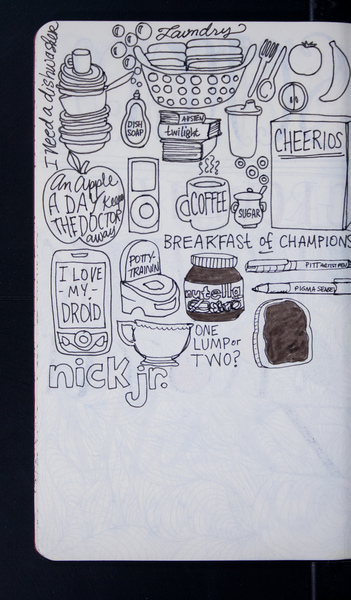 Laundry
I Need a dishwasher
DISH
SOAP
AUSTEN
twilight
CHEERIOS
An Apple
A DAY Keeps
THE DOCTOR
away
COFFEE
SUGAR
BREAKFAST of CHAMPIONS
I LOVE
-MY-
DROID
POTTY-
TRAINING
nutella
PITT ARTIST PEN
PIGMA SENSEI
ONE
LUMP or
TWO?
nick jr.